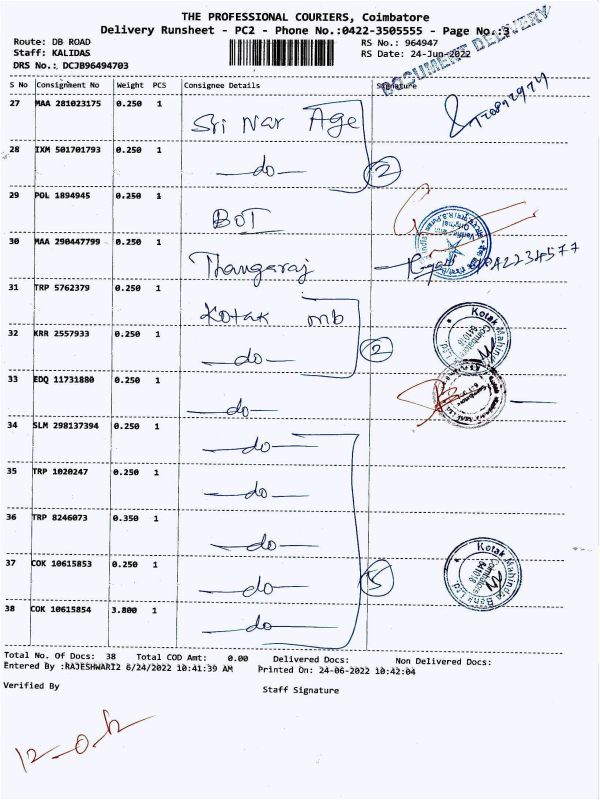 THE PROFESSIONAL COURIERS, Coimbatore
Delivery Runsheet - PC2 - Phone No.:0422-3505555 - Page No.:3
DOCUMENT DELIVERY
Route: DB ROAD RS No.: 964947
Staff: KALIDAS RS Date: 24-Jun-2022
DRS No.: DCJB96494703
S No Consignment No Weight PCS Consignee Details Signature
27 MAA 281023175 0.250 1 Sri Nar Age
28 IXM 501701793 0.250 1 —do— 2
29 POL 1894945 0.250 1 BOT
30 MAA 290447799 0.250 1 Thangaraj
31 TRP 5762379 0.250 1 Kotak mb
32 KRR 2557933 0.250 1 —do— 2
33 EDQ 11731880 0.250 1 —do—
34 SLM 298137394 0.250 1 —do—
35 TRP 1020247 0.250 1 —do—
36 TRP 8246073 0.350 1 —do—
37 COK 10615853 0.250 1 —do— 5
38 COK 10615854 3.800 1 —do—
Total No. Of Docs: 38 Total COD Amt: 0.00 Delivered Docs: Non Delivered Docs:
Entered By :RAJESHWARI2 6/24/2022 10:41:39 AM Printed On: 24-06-2022 10:42:04
Verified By Staff Signature